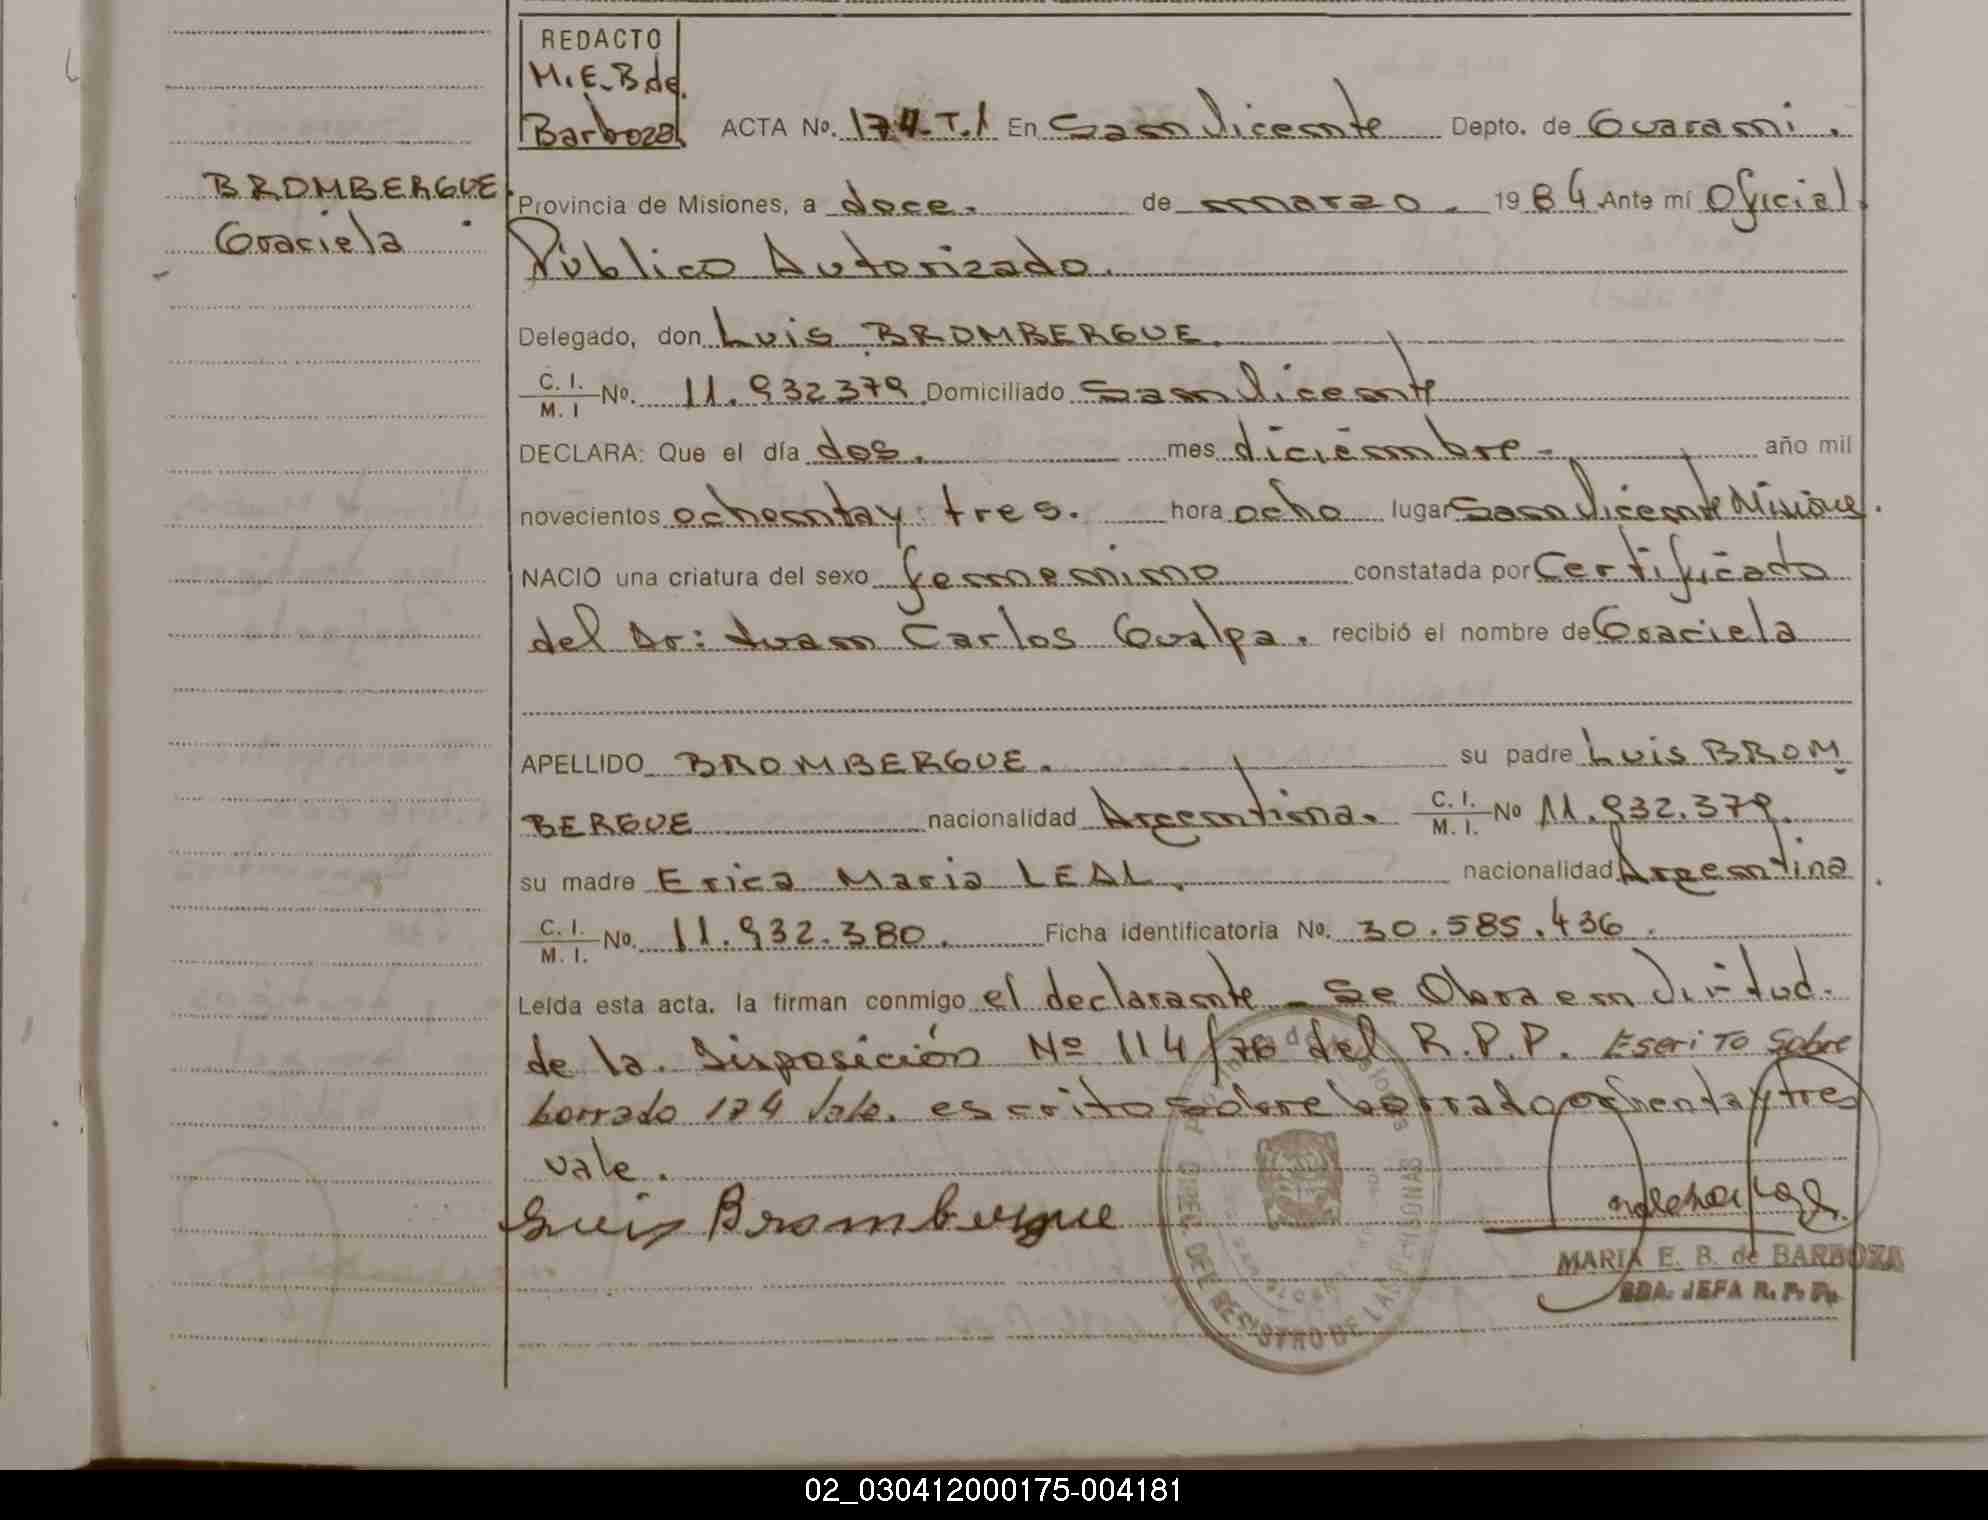 REDACTO
M.E.B de.
Barboza
ACTA No. 174. T.1 En San Vicente Depto. de Guarani.
BROMBERGUE
Provincia de Misiones, a doce. de marzo. 1984 Ante mí Oficial
Graciela
Público Autorizado.
Delegado, don Luis BROMBERGUE.
C. I. / M. I No. 11.932379 Domiciliado San Vicente
DECLARA: Que el día dos. mes diciembre - año mil
novecientos ochenta y tres. hora ocho lugar San Vicente Misiones.
NACIO una criatura del sexo femenino constatada por Certificado
del Dr: Juan Carlos Gualpa. recibió el nombre de Graciela
APELLIDO BROMBERGUE. su padre Luis BROM
BERGUE nacionalidad Argentina. C. I. / M. I. No 11.932.379.
su madre Erica Maria LEAL. nacionalidad Argentina
C. I. / M. I. No. 11.932.380. Ficha identificatoria No. 30.585.436.
Leída esta acta, la firman conmigo el declarante - Se Obra en Virtud.
de la Disposición Nº 114/78 del R.P.P. Escrito Sobre
borrado 174 Vale. escrito sobre borrado ochenta y tres
vale.
Luis Brombergue
DIREC. DEL REGISTRO DE LAS PERSONAS
MARIA E. B. de BARBOZA
JEFA R. P. P.
02_030412000175-004181